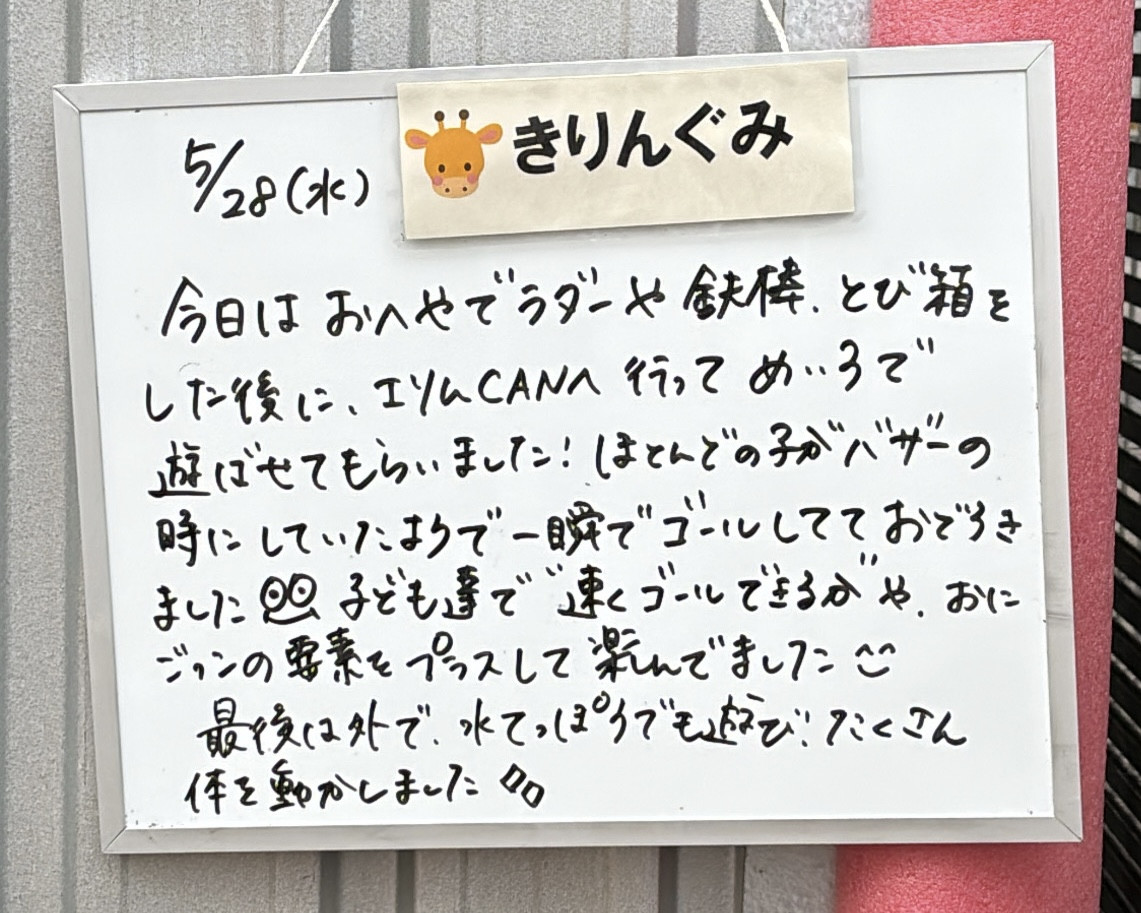 きりんぐみ
5/28(水)
今日は おへやでラダーや 鉄棒、とび箱を
した後に、エソムCANへ 行って めいろで
遊ばせてもらいました！ほとんどの子がバザーの
時にしていたようで一瞬でゴールしてて おどろき
ました 子ども達で"速くゴールできるか"や、おに
ごっこの要素をプラスして楽しんでました
最後は外で、水てっぽうでも遊び、たくさん
体を動かしました